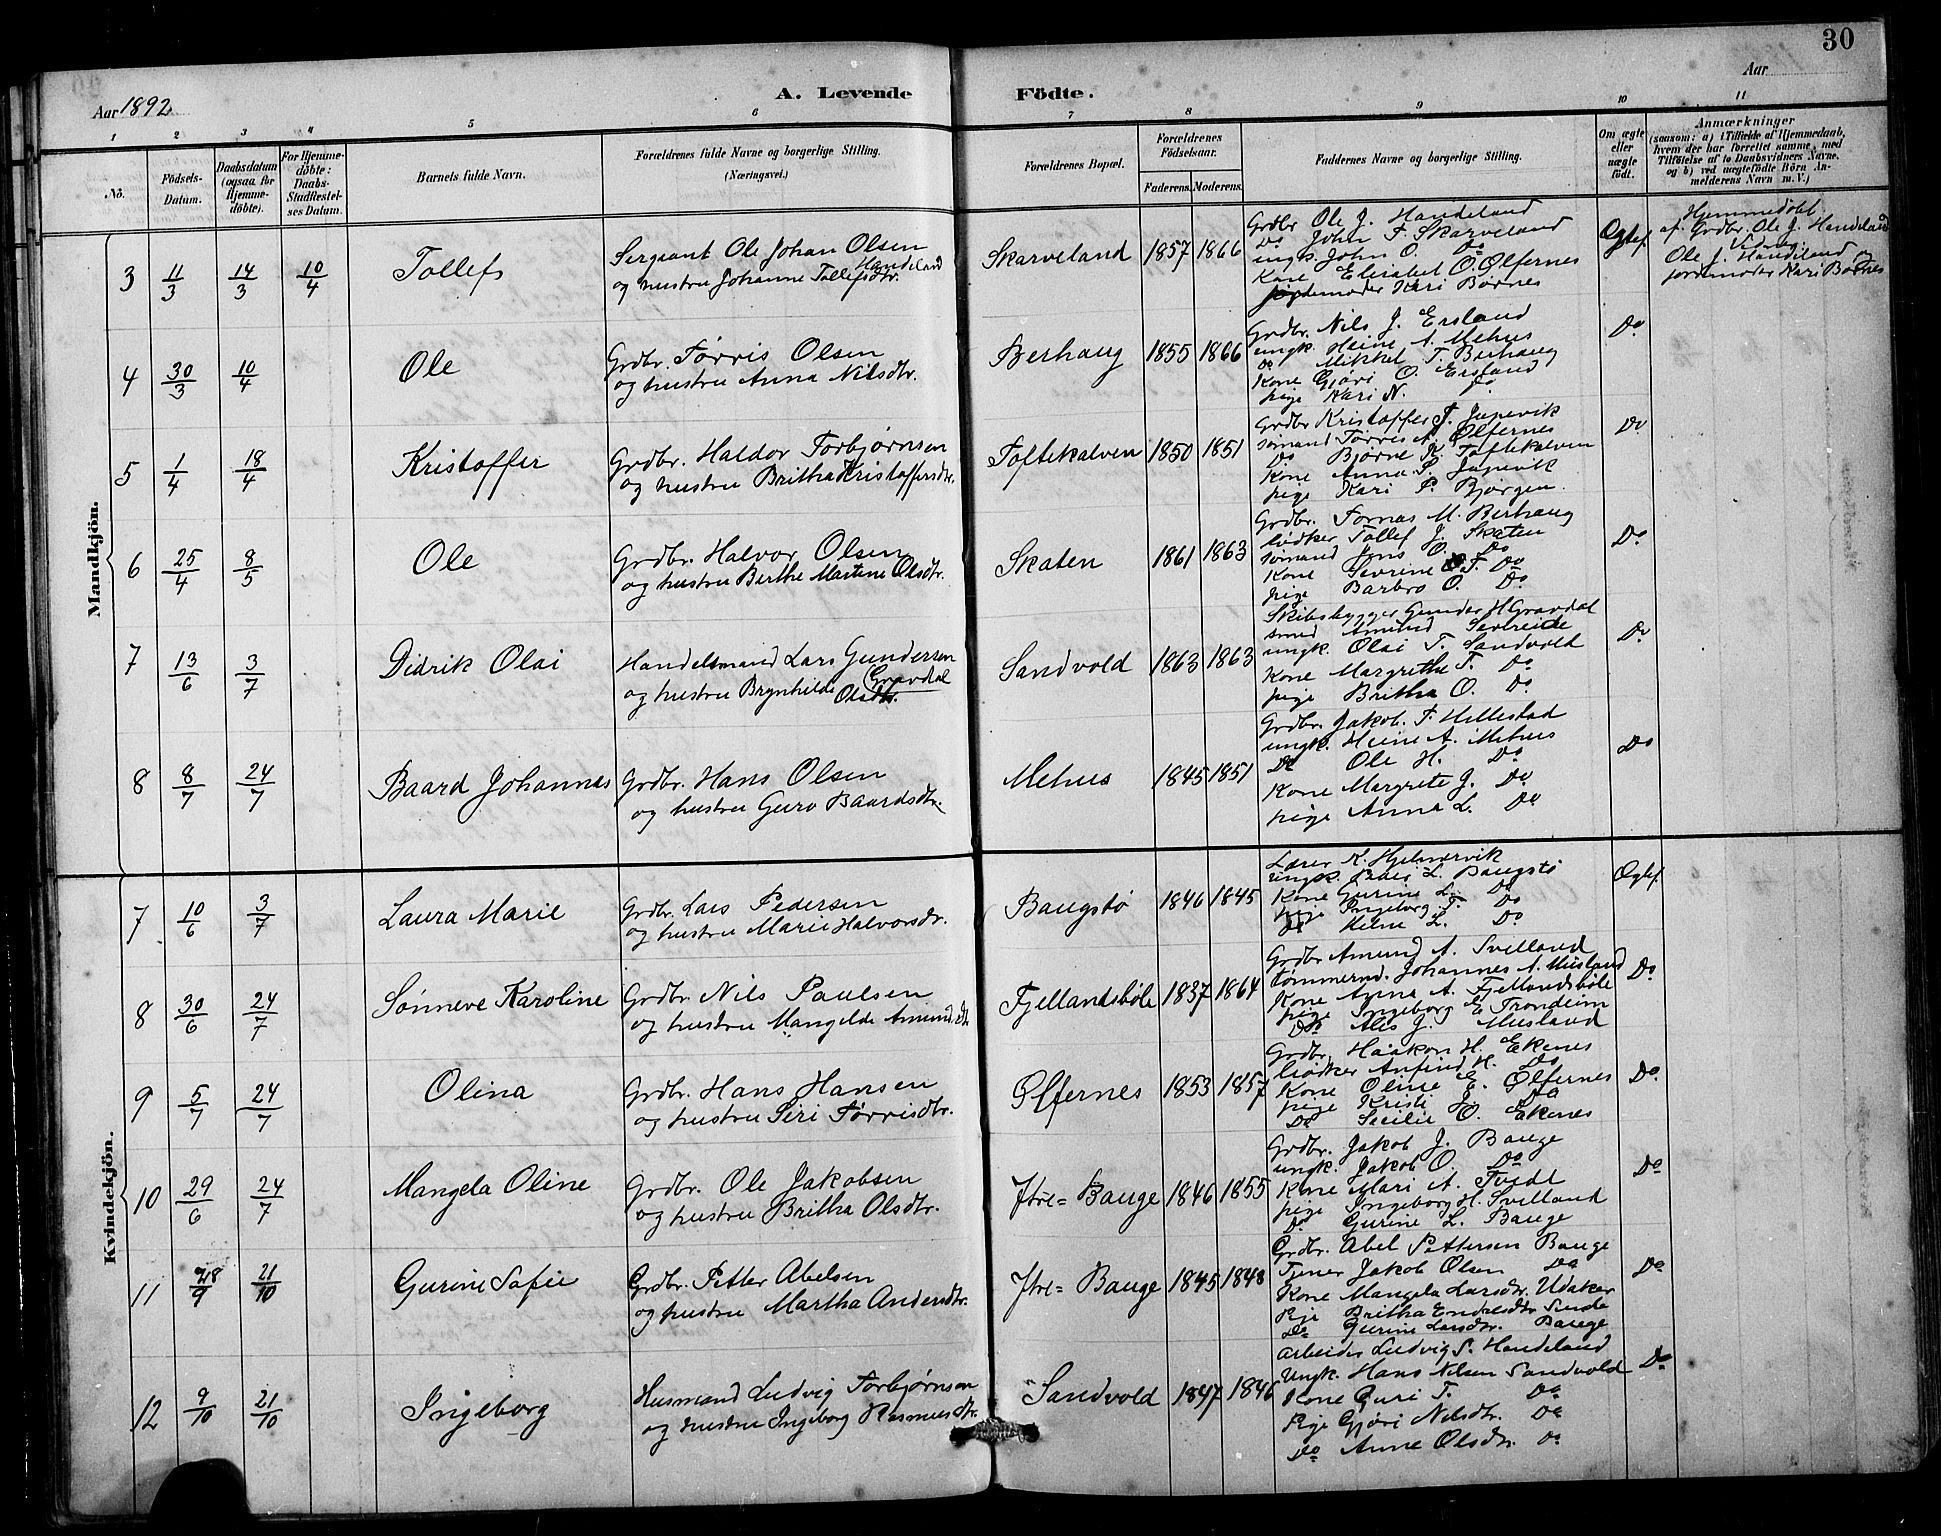 30
Aar 1892
A. Levende Födte.
Aar
1 2 3 4 5 6 7 8 9 10 11
No.
Födsels-Datum.
Daabsdatum (ogsaa for Hjemme-döbte).
For Hjemme-döbte: Daabs-Stadfæstel-ses Datum.
Barnets fulde Navn.
Forældrenes fulde Navne og borgerlige Stilling. (Næringsvei.)
Forældrenes Bopæl.
Forældrenes Födselsaar.
Faderens. Moderens.
Faddernes Navne og borgerlige Stilling.
Om ægte eller uægte födt.
Anmærkninger
(saasom: a) i Tilfælde af Hjemmedaab,
hvem der har forrettet samme, med
Tilföielse af to Daabsvidners Navne,
og b) ved uægtefödte Börn An-
melderens Navn m. V.)
Mandkjön.
3 11/3 14/3 10/4 Tollef
Sergeant Ole Johan Olsen Handeland
og hustru Johanne Tollefsdtr.
Skarveland 1857 1866
Grdbr Ole J. Handeland
Do John T. Skarveland
ungk. John O. Do
Kone Elisabet O. Ølfernes
jordemoder Kari Børnes
Ægtef.
Hjemmedøbt
af Grdbr. Ole J. Handeland
Vidner:
Ole J. Handeland og
jordemoder Kari Børnes
4 30/3 10/4 Ole
Grdbr. Tørris Olsen
og hustru Anna Nilsdtr.
Berhaug 1855 1866
Grdbr. Nils J. Ersland
ungk. Heine A. Mehus
Do Mikkel T. Berhaug
Kone Gjøri O. Ersland
pige Kari N. Do
Do
5 1/4 18/4 Kristoffer
Grdbr. Haldor Torbjørnsen
og hustru Britha Kristoffersdtr.
Toftekalven 1850 1851
Grdbr Kristoffer J. Jupevik
sømand Tørres A. Ølfernes
Do Bjørne K. Toftekalven
Kone Anna P. Jupevik
pige Kari P. Bjørgen.
Do
6 25/4 8/5 Ole
Grdbr. Halvor Olsen
og hustru Berthe Martine Olsdtr.
Skaten 1861 1863
Grdbr. Tornas M. Berhaug
bødker Tollef J. Skaten
sømand Jens O. Do
Kone Sevrine T. Do
pige Barbro O. Do
Do
7 13/6 3/7 Didrik Olai
Handelsmand Lars Gundersen Gravdal
og hustru Brynhilde Olsdtr.
Sandvold 1863 1863
Skibsbygger Gunder H Gravdal
smed Amund Sevreide
ungk. Olai T. Sandvold
Kone Margrethe T. Do
pige Britha O. Do
Do
8 8/7 24/7 Baard Johannes
Grdbr. Hans Olsen
og hustru Guro Baardsdtr.
Mehus 1845 1851
Grdbr. Jakob. T. Hillestad
ungk. Heine A. Mehus
Do Ole H. Do
Kone Margrete J. Do
pige Anna L. Do
Do
Kvindekjön.
7 10/6 3/7 Laura Marie
Grdbr. Lars Pedersen
og hustru Marie Halvorsdr.
Baugstø 1846 1845
Lærer K. Hjelmervik
ungk. L. Baugstø
Kone Gurine L. Do
pige Ingeborg T. Do
Do Helne L. Do
Ægtef.
8 30/6 24/7 Sønneve Karoline
Grdbr. Nils Paulsen
og hustru Mangelde Amundsdtr
Fjellandsbøle 1837 1864
Grdbr Amund A. Svelland
tømmermd. Johannes A. Musland
Kone Anna A. Fjellandsbøle
pige Ingeborg E. Trondeim
Do Alis J. Musland
Do
9 5/7 24/7 Olina
Grdbr. Hans Hansen
og hustru Siri Tørrisdtr.
Ølfernes 1853 1857
Grdbr. Haakon H. Ekenes
bødker Anfind H. Do
Kone Oline E. Ølfernes
pige Kristi J. Do
Do Secilie O. Ekenes
Do.
10 29/6 24/7 Mangela Oline
Grdbr. Ole Jakobsen
og hustru Britha Olsdtr.
Ytre=Bauge 1846 1855
Grdbr. Jakob J. Bauge
ungk. Jakob O. Do
Kone Mari A. Tvedt
pige Ingeborg H. Svelland
Do Gurine L. Bauge
Do
11 28/9 21/10 Gurine Sofie
Grdbr. Petter Abelsen
og hustru Martha Andersdtr.
Ytre=Bauge 1845 1848
Grdbr. Abel Pettersen Bauge
Tjener Jakob Olsen Do
Kone Mangela Larsdtr. Udaker
Pige Britha Endresdtr Sunde
Do Gurine Larsdtr. Bauge
Do
12 9/10 21/10 Ingeborg
Husmand Ludvig Torbjørnsen
og hustru Ingeborg Rasmusdtr.
Sandvold 1847 1846
Arbeider Ludvig S. Handeland
Ungk. Hans Nilsen Sandvold
Kone Guri T. Do
Pige Gjøri Nilsdtr. Do
Do Anne Olsdtr. Do
Do